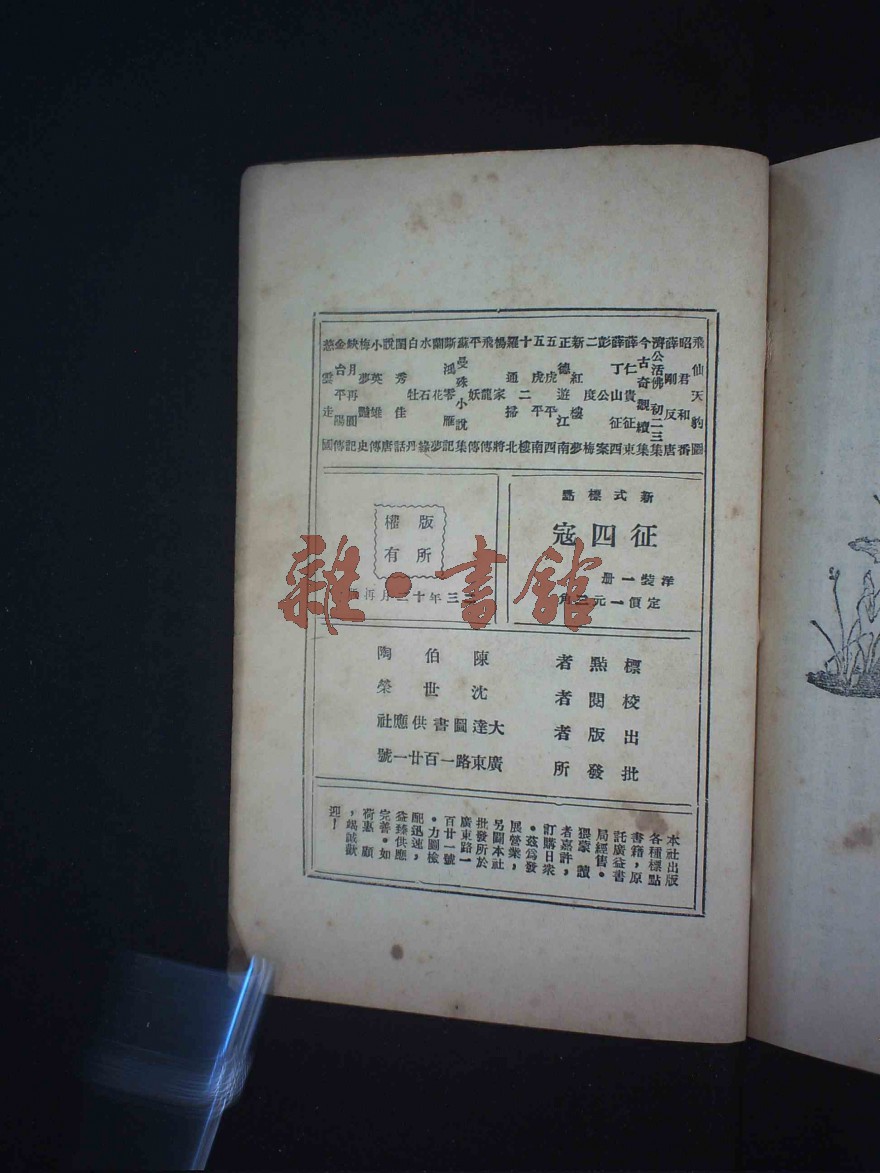 飛仙天豹圖
昭君和番
薛剛反唐
濟公活佛初二三集
今古奇觀續集
薛仁貴征東
薛丁山征西
彭公案
二度梅
新紅樓夢
正德遊江南
五虎平西
五虎平南
十二樓
羅通掃北
楊家將
飛龍傳
平妖傳
蘇曼殊小說集
斷鴻零雁記
蘭花夢
水石緣
白牡丹
閨秀佳話
說唐
小英雄傳
梅夢豔史
缺月再圓記
金台平陽傳
慈雲走國
新式標點
征四寇
洋裝一冊
定價一元三角
版權
所有
三年十二月再
標點者 陳伯陶
校閱者 沈世榮
出版者 大達圖書供應社
批發所 廣東路一百廿一號
本社出版
各種標點
書籍，原
託廣益書
局經售。
猥蒙 讀
者嘉許，
訂購日衆
。茲爲發
展營業，
另闢本社
批發所於
廣東路一
百廿一號
。力圖檢
配迅速，
益臻供應
完善。如
荷惠 顧
，竭誠歡
迎！
雜·書館